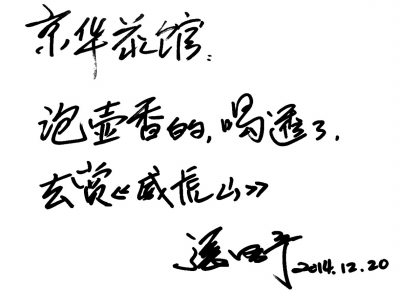 京华茶馆:
泡壶香的,喝透了,
去赏《威虎山》
张涵予 2014.12.20